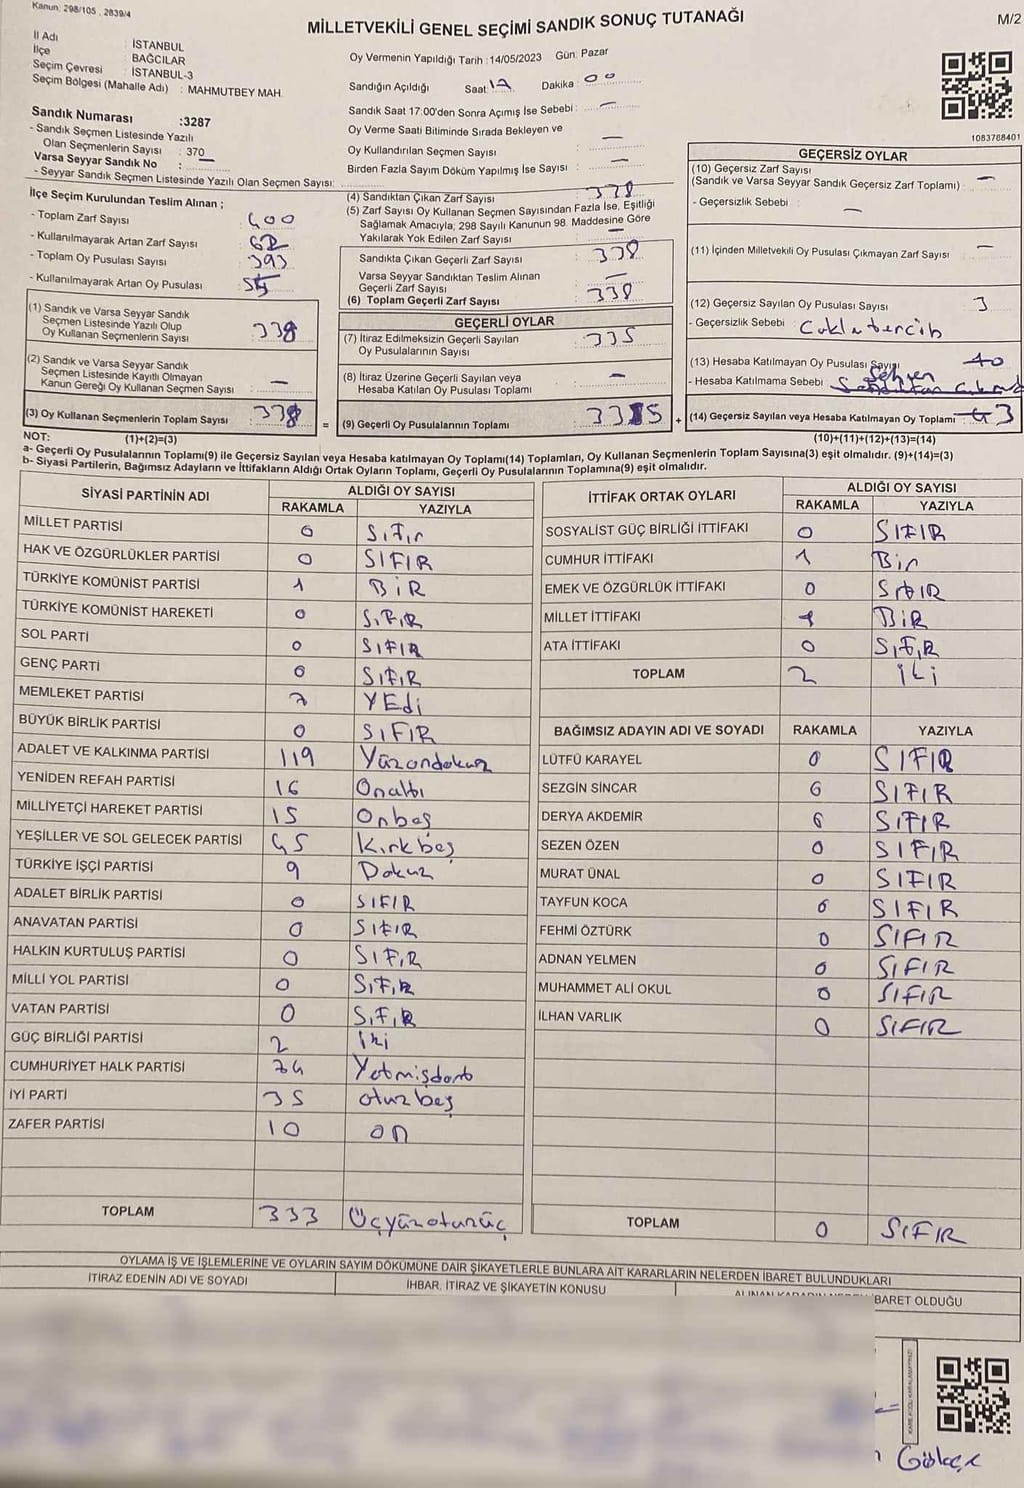 Kanun: 298/105 , 2839/4
MİLLETVEKİLİ GENEL SEÇİMİ SANDIK SONUÇ TUTANAĞI
M/2
İl Adı : İSTANBUL
İlçe : BAĞCILAR
Seçim Çevresi : İSTANBUL-3
Seçim Bölgesi (Mahalle Adı) : MAHMUTBEY MAH.
Oy Vermenin Yapıldığı Tarih :14/05/2023 Gün: Pazar
Sandığın Açıldığı Saat: 17 Dakika : 00
Sandık Saat 17:00'den Sonra Açımış İse Sebebi : —
Oy Verme Saati Bitiminde Sırada Bekleyen ve
Oy Kullandırılan Seçmen Sayısı : —
Birden Fazla Sayım Döküm Yapılmış İse Sayısı : —
1083768401
Sandık Numarası :3287
- Sandık Seçmen Listesinde Yazılı
Olan Seçmenlerin Sayısı : 370
Varsa Seyyar Sandık No : —
- Seyyar Sandık Seçmen Listesinde Yazılı Olan Seçmen Sayısı:
İlçe Seçim Kurulundan Teslim Alınan ;
- Toplam Zarf Sayısı : 400
- Kullanılmayarak Artan Zarf Sayısı : 62
- Toplam Oy Pusulası Sayısı : 393
- Kullanılmayarak Artan Oy Pusulası : 55
(1) Sandık ve Varsa Seyyar Sandık
Seçmen Listesinde Yazılı Olup
Oy Kullanan Seçmenlerin Sayısı : 338
(2) Sandık ve Varsa Seyyar Sandık
Seçmen Listesinde Kayıtlı Olmayan
Kanun Gereği Oy Kullanan Seçmen Sayısı : —
(3) Oy Kullanan Seçmenlerin Toplam Sayısı : 338
(4) Sandıktan Çıkan Zarf Sayısı : 338
(5) Zarf Sayısı Oy Kullanan Seçmen Sayısından Fazla İse, Eşitliği
Sağlamak Amacıyla; 298 Sayılı Kanunun 98. Maddesine Göre
Yakılarak Yok Edilen Zarf Sayısı : —
Sandıkta Çıkan Geçerli Zarf Sayısı : 338
Varsa Seyyar Sandıktan Teslim Alınan
Geçerli Zarf Sayısı : —
(6) Toplam Geçerli Zarf Sayısı : 338
GEÇERLİ OYLAR
(7) İtiraz Edilmeksizin Geçerli Sayılan
Oy Pusulalarının Sayısı : 335
(8) İtiraz Üzerine Geçerli Sayılan veya
Hesaba Katılan Oy Pusulası Toplamı : —
= (9) Geçerli Oy Pusulalarının Toplamı : 335 +
GEÇERSİZ OYLAR
(10) Geçersiz Zarf Sayısı
(Sandık ve Varsa Seyyar Sandık Geçersiz Zarf Toplamı) : —
- Geçersizlik Sebebi : —
(11) İçinden Milletvekili Oy Pusulası Çıkmayan Zarf Sayısı : —
(12) Geçersiz Sayılan Oy Pusulası Sayısı : 3
- Geçersizlik Sebebi :
(13) Hesaba Katılmayan Oy Pusulası Sayısı
- Hesaba Katılmama Sebebi
(14) Geçersiz Sayılan veya Hesaba Katılmayan Oy Toplamı : 3
NOT: (1)+(2)=(3) (10)+(11)+(12)+(13)=(14)
a- Geçerli Oy Pusulalarının Toplamı(9) ile Geçersiz Sayılan veya Hesaba katılmayan Oy Toplamı(14) Toplamları, Oy Kullanan Seçmenlerin Toplam Sayısına(3) eşit olmalıdır. (9)+(14)=(3)
b- Siyasi Partilerin, Bağımsız Adayların ve İttifakların Aldığı Ortak Oyların Toplamı, Geçerli Oy Pusulalarının Toplamına(9) eşit olmalıdır.
SİYASİ PARTİNİN ADI ALDIĞI OY SAYISI
RAKAMLA YAZIYLA
MİLLET PARTİSİ 0 Sıfır
HAK VE ÖZGÜRLÜKLER PARTİSİ 0 SIFIR
TÜRKİYE KOMÜNİST PARTİSİ 1 BİR
TÜRKİYE KOMÜNİST HAREKETİ 0 SIFIR
SOL PARTİ 0 SIFIR
GENÇ PARTİ 0 SIFIR
MEMLEKET PARTİSİ 7 YEdi
BÜYÜK BİRLİK PARTİSİ 0 SIFIR
ADALET VE KALKINMA PARTİSİ 119 Yüzondokuz
YENİDEN REFAH PARTİSİ 16 Onaltı
MİLLİYETÇİ HAREKET PARTİSİ 15 Onbeş
YEŞİLLER VE SOL GELECEK PARTİSİ 45 Kırkbeş
TÜRKİYE İŞÇİ PARTİSİ 9 Dokuz
ADALET BİRLİK PARTİSİ 0 SIFIR
ANAVATAN PARTİSİ 0 SIFIR
HALKIN KURTULUŞ PARTİSİ 0 SIFIR
MİLLİ YOL PARTİSİ 0 SIFIR
VATAN PARTİSİ 0 SIFIR
GÜÇ BİRLİĞİ PARTİSİ 2 iki
CUMHURİYET HALK PARTİSİ 74 Yetmişdört
İYİ PARTİ 35 otuzbeş
ZAFER PARTİSİ 10 on
TOPLAM 333 Üçyüzotuzüç
İTTİFAK ORTAK OYLARI ALDIĞI OY SAYISI
RAKAMLA YAZIYLA
SOSYALİST GÜÇ BİRLİĞİ İTTİFAKI 0 SIFIR
CUMHUR İTTİFAKI 1 Bir
EMEK VE ÖZGÜRLÜK İTTİFAKI 0 SIFIR
MİLLET İTTİFAKI 1 BİR
ATA İTTİFAKI 0 SIFIR
TOPLAM 2 iki
BAĞIMSIZ ADAYIN ADI VE SOYADI RAKAMLA YAZIYLA
LÜTFÜ KARAYEL 0 SIFIR
SEZGİN SİNCAR 0 SIFIR
DERYA AKDEMİR 0 SIFIR
SEZEN ÖZEN 0 SIFIR
MURAT ÜNAL 0 SIFIR
TAYFUN KOCA 0 SIFIR
FEHMİ ÖZTÜRK 0 SIFIR
ADNAN YELMEN 0 SIFIR
MUHAMMET ALİ OKUL 0 SIFIR
İLHAN VARLIK 0 SIFIR
TOPLAM 0 SIFIR
OYLAMA İŞ VE İŞLEMLERİNE VE OYLARIN SAYIM DÖKÜMÜNE DAİR ŞİKAYETLERLE BUNLARA AİT KARARLARIN NELERDEN İBARET BULUNDUKLARI
İTİRAZ EDENİN ADI VE SOYADI İHBAR, İTİRAZ VE ŞİKAYETİN KONUSU İBARET OLDUĞU